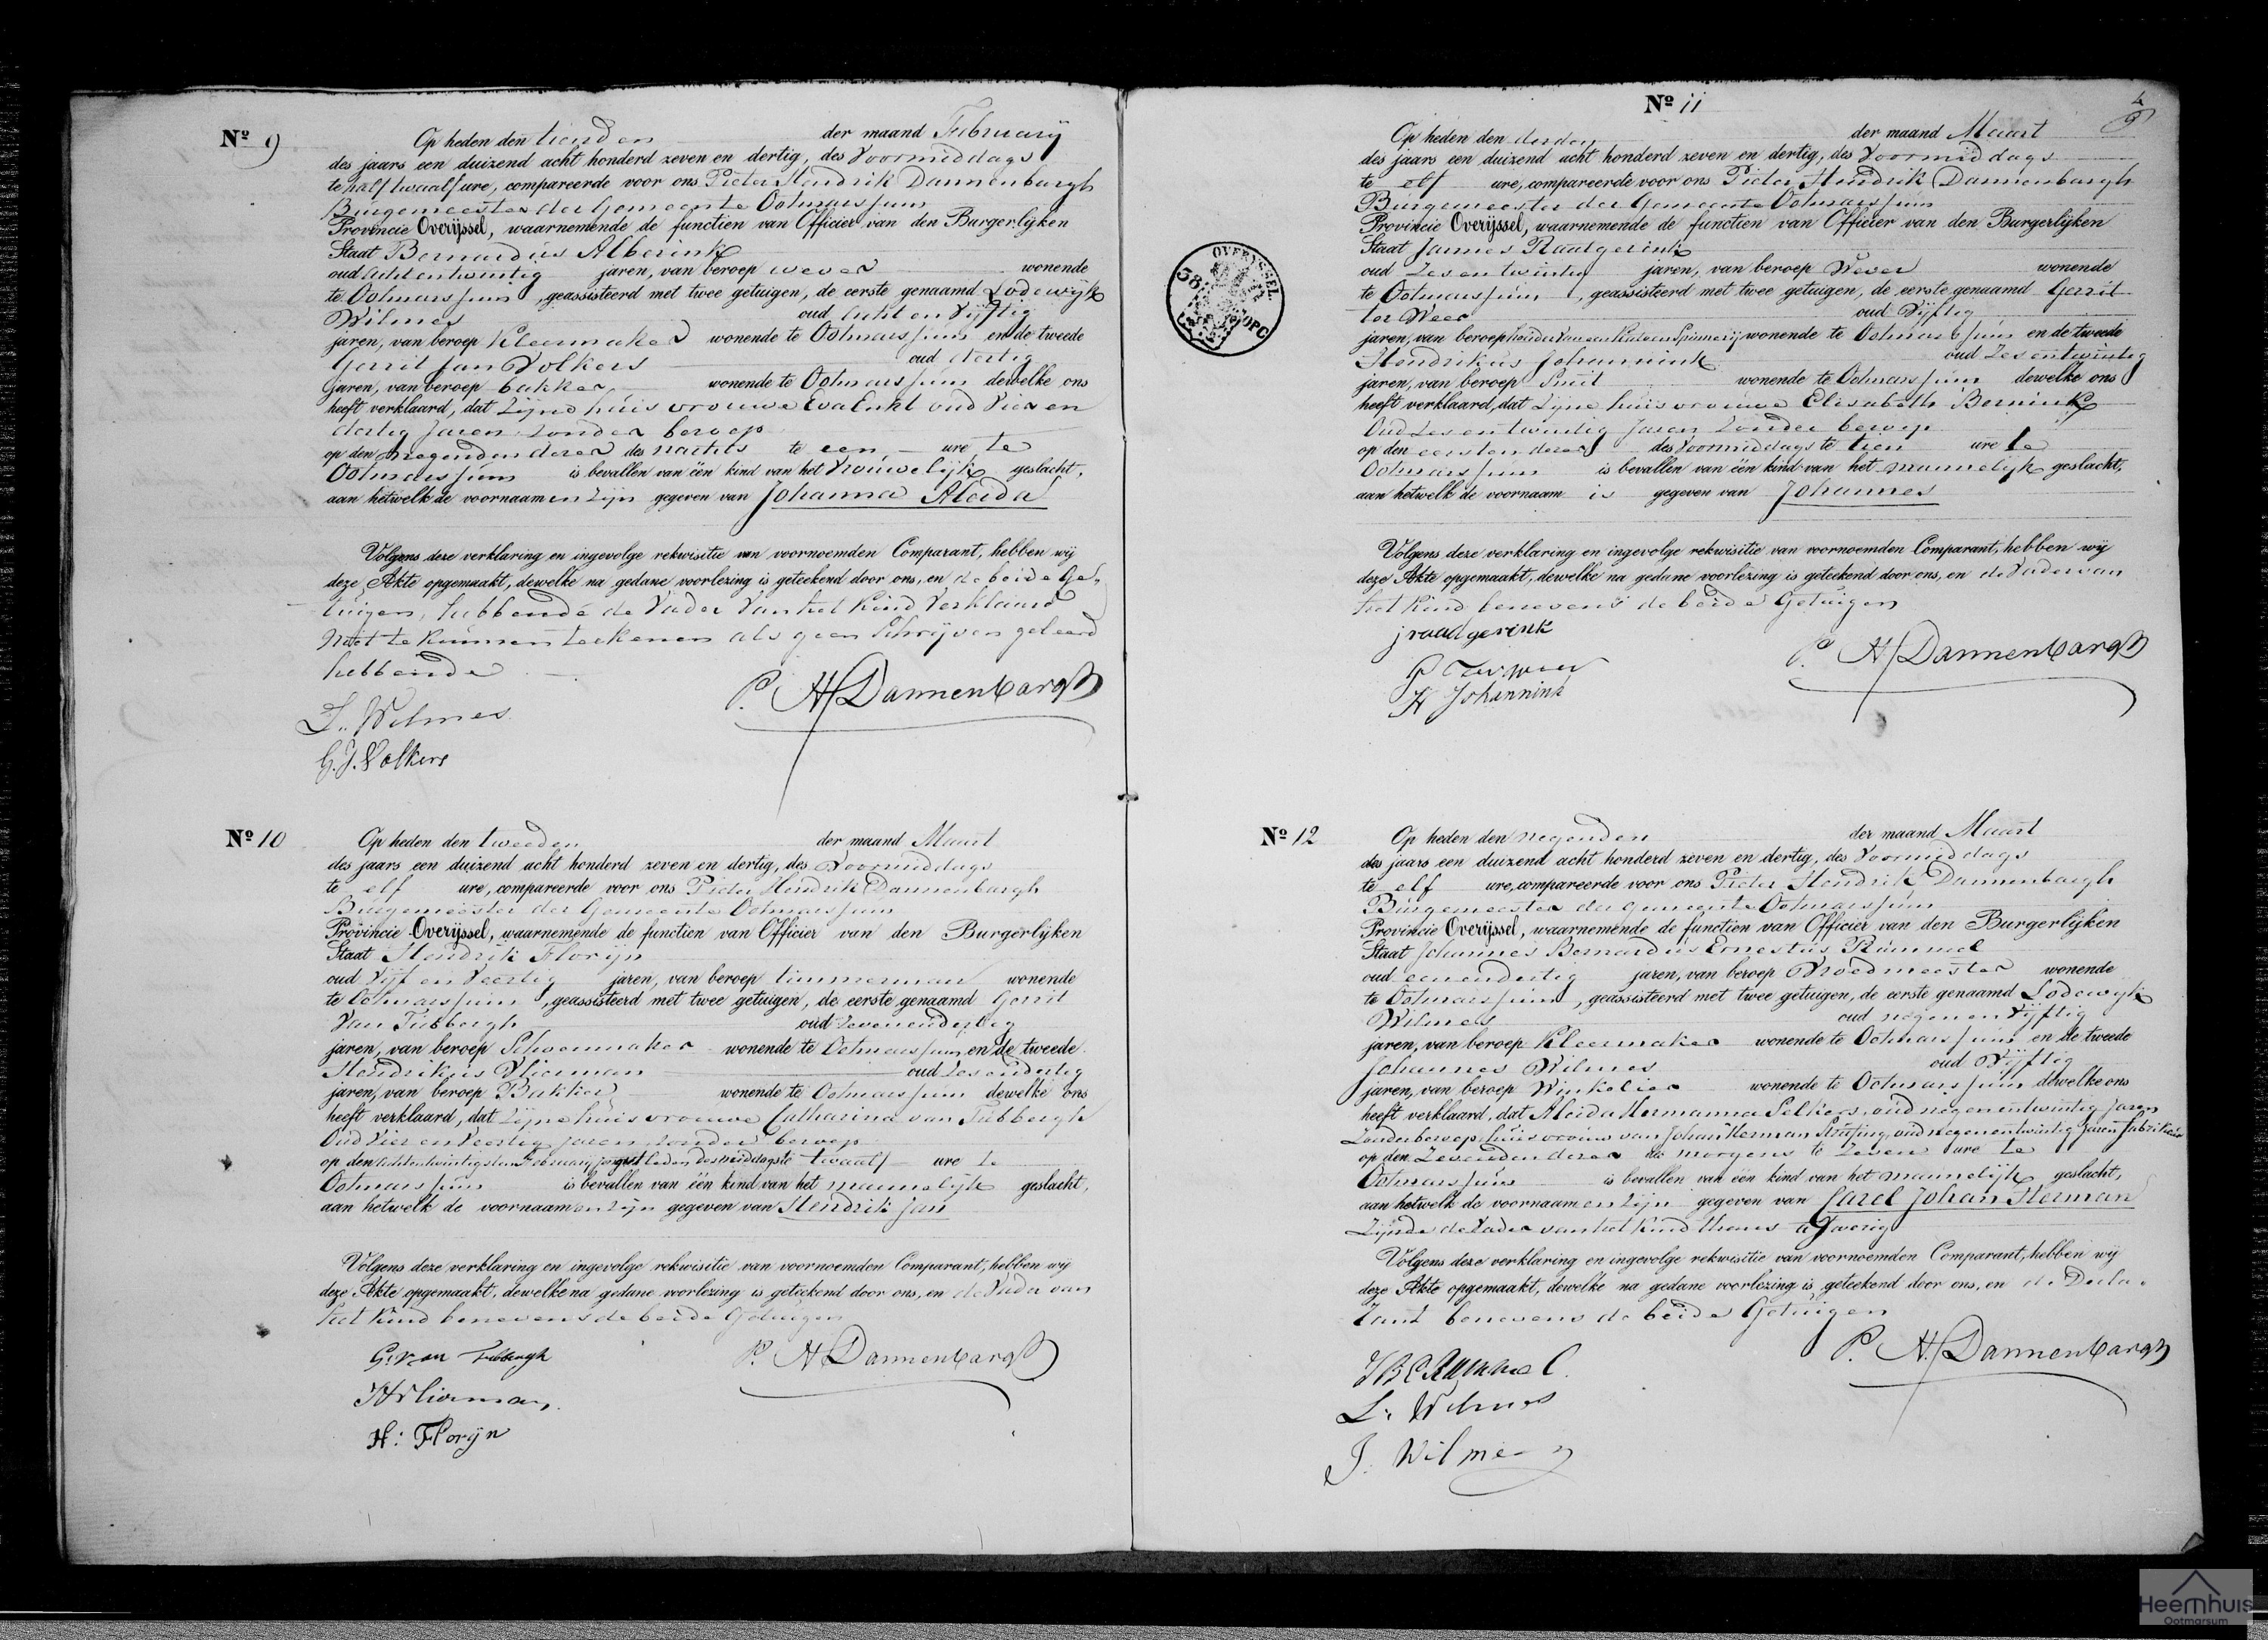 Nº 9
Op heden den tienden der maand February
des jaars een duizend acht honderd zeven en dertig, des Voormiddags
te half twaalf ure, compareerde voor ons Pieter Hendrik Dannenbargh
Burgemeester der Gemeente Ootmarssum
Provincie Overijssel, waarnemende de functien van Officier van den Burgerlijken
Staat Bernardus Alberink
oud achtentwintig jaren, van beroep wever wonende
te Ootmarssum, geassisteerd met twee getuigen, de eerste genaamd Lodewijk
Wilmes oud acht en Vijftig
jaren, van beroep Kleermaker wonende te Ootmarssum en de tweede
Gerrit Jan Volkers oud dertig
jaren, van beroep bakker wonende te Ootmarssum dewelke ons
heeft verklaard, dat Zijne huisvrouwe Eva Enkt oud Vier en
dertig Jaren Zonder beroep
op den negenden dezer des nachts te een ure te
Ootmarssum is bevallen van één kind van het Vrouwelijk geslacht,
aan hetwelk de voornaamen zijn gegeven van Johanna Aleida
Volgens deze verklaring en ingevolge rekwisitie van voornoemden Comparant, hebben wij
deze Akte opgemaakt, dewelke na gedane voorlezing is geteekend door ons, en de beide Ge-
tuigen, hebbende de Vader Van het Kind Verklaard
niet te kunnen teekenen als geen Schrijven geleerd
hebbende
P. H. Dannenbargh
L. Wilmes
G. J. Volkers
Nº 10
Op heden den tweeden der maand Maart
des jaars een duizend acht honderd zeven en dertig, des Voormiddags
te elf ure, compareerde voor ons Pieter Hendrik Dannenbargh
Burgemeester der Gemeente Ootmarssum
Provincie Overijssel, waarnemende de functien van Officier van den Burgerlijken
Staat Hendrik Florijn
oud Vijf en Veertig jaren, van beroep timmerman wonende
te Ootmarssum, geassisteerd met twee getuigen, de eerste genaamd Gerrit
Van Tubbergh oud Zevenendertig
jaren, van beroep Schoenmaker wonende te Ootmarssum en de tweede
Hendrikus Vlierman oud Zesendertig
jaren, van beroep Bakker wonende te Ootmarssum dewelke ons
heeft verklaard, dat Zijne huisvrouwe Catharina van Tubbergh
Oud Vier en Veertig jaren zonder beroep
op den achtentwintigsten February jongstleden des middags te twaalf ure te
Ootmarssum is bevallen van één kind van het mannelijk geslacht,
aan hetwelk de voornaamen zijn gegeven van Hendrik Jan
Volgens deze verklaring en ingevolge rekwisitie van voornoemden Comparant, hebben wij
deze Akte opgemaakt, dewelke na gedane voorlezing is geteekend door ons, en de Vader van
het Kind benevens de beide Getuigen
P. H. Dannenbargh
G. van Tubbergh
H Vlierman
H: Florijn
Nº 11
Op heden den derden der maand Maart
des jaars een duizend acht honderd zeven en dertig, des Voormiddags
te elf ure, compareerde voor ons Pieter Hendrik Dannenbargh
Burgemeester der Gemeente Ootmarssum
Provincie Overijssel, waarnemende de functien van Officier van den Burgerlijken
Staat Jannes Raadgerink
oud Zesentwintig jaren, van beroep Wever wonende
te Ootmarssum, geassisteerd met twee getuigen, de eerste genaamd Gerrit
ter Weer oud Vijftig
jaren, van beroep houder van een Katoen Spinnerij wonende te Ootmarssum en de tweede
Hendrikus Johannink oud Zesentwintig
jaren, van beroep Smid wonende te Ootmarssum dewelke ons
heeft verklaard, dat Zijne huisvrouwe Elisabeth Bernink
Oud Zesentwintig Jaren Zonder beroep
op den eersten dezer des Voormiddags te tien ure te
Ootmarssum is bevallen van één kind van het mannelijk geslacht,
aan hetwelk de voornaam is gegeven van Johannes
Volgens deze verklaring en ingevolge rekwisitie van voornoemden Comparant, hebben wij
deze Akte opgemaakt, dewelke na gedane voorlezing is geteekend door ons, en de Vader van
het Kind benevens de beide Getuigen
j raadgerink
P. H. Dannenbargh
G Ter weer
H Johannink
OVERYSSEL
Nº 12
Op heden den negenden der maand Maart
des jaars een duizend acht honderd zeven en dertig, des Voormiddags
te elf ure, compareerde voor ons Pieter Hendrik Dannenbargh
Burgemeester der Gemeente Ootmarssum
Provincie Overijssel, waarnemende de functien van Officier van den Burgerlijken
Staat Johannes Bernardus Ernestus Rummel
oud eenendertig jaren, van beroep Vroedmeester wonende
te Ootmarssum, geassisteerd met twee getuigen, de eerste genaamd Lodewijk
Wilmes oud negen en Vijftig
jaren, van beroep Kleermaker wonende te Ootmarssum en de tweede
Johannes Wilmes oud Vijftig
jaren, van beroep Winkelier wonende te Ootmarssum dewelke ons
heeft verklaard, dat Aleida Hermanna Selkers, oud negenentwintig Jaren
Zonder beroep, huisvrouw van Johan Herman Strüfing, oud negenentwintig Jaren Fabrikeur
op den Zevenden dezer des morgens te Zeven ure te
Ootmarssum is bevallen van één kind van het mannelijk geslacht,
aan hetwelk de voornaamen zijn gegeven van Carel Johan Herman
Zijnde de Vader van het Kind thans afwezig
Volgens deze verklaring en ingevolge rekwisitie van voornoemden Comparant, hebben wij
deze Akte opgemaakt, dewelke na gedane voorlezing is geteekend door ons, en de Decla-
rant benevens de beide Getuigen
P. H. Dannenbargh
J B E Rummel
L. Wilmes
J. Wilmes
Heemhuis
Ootmarsum